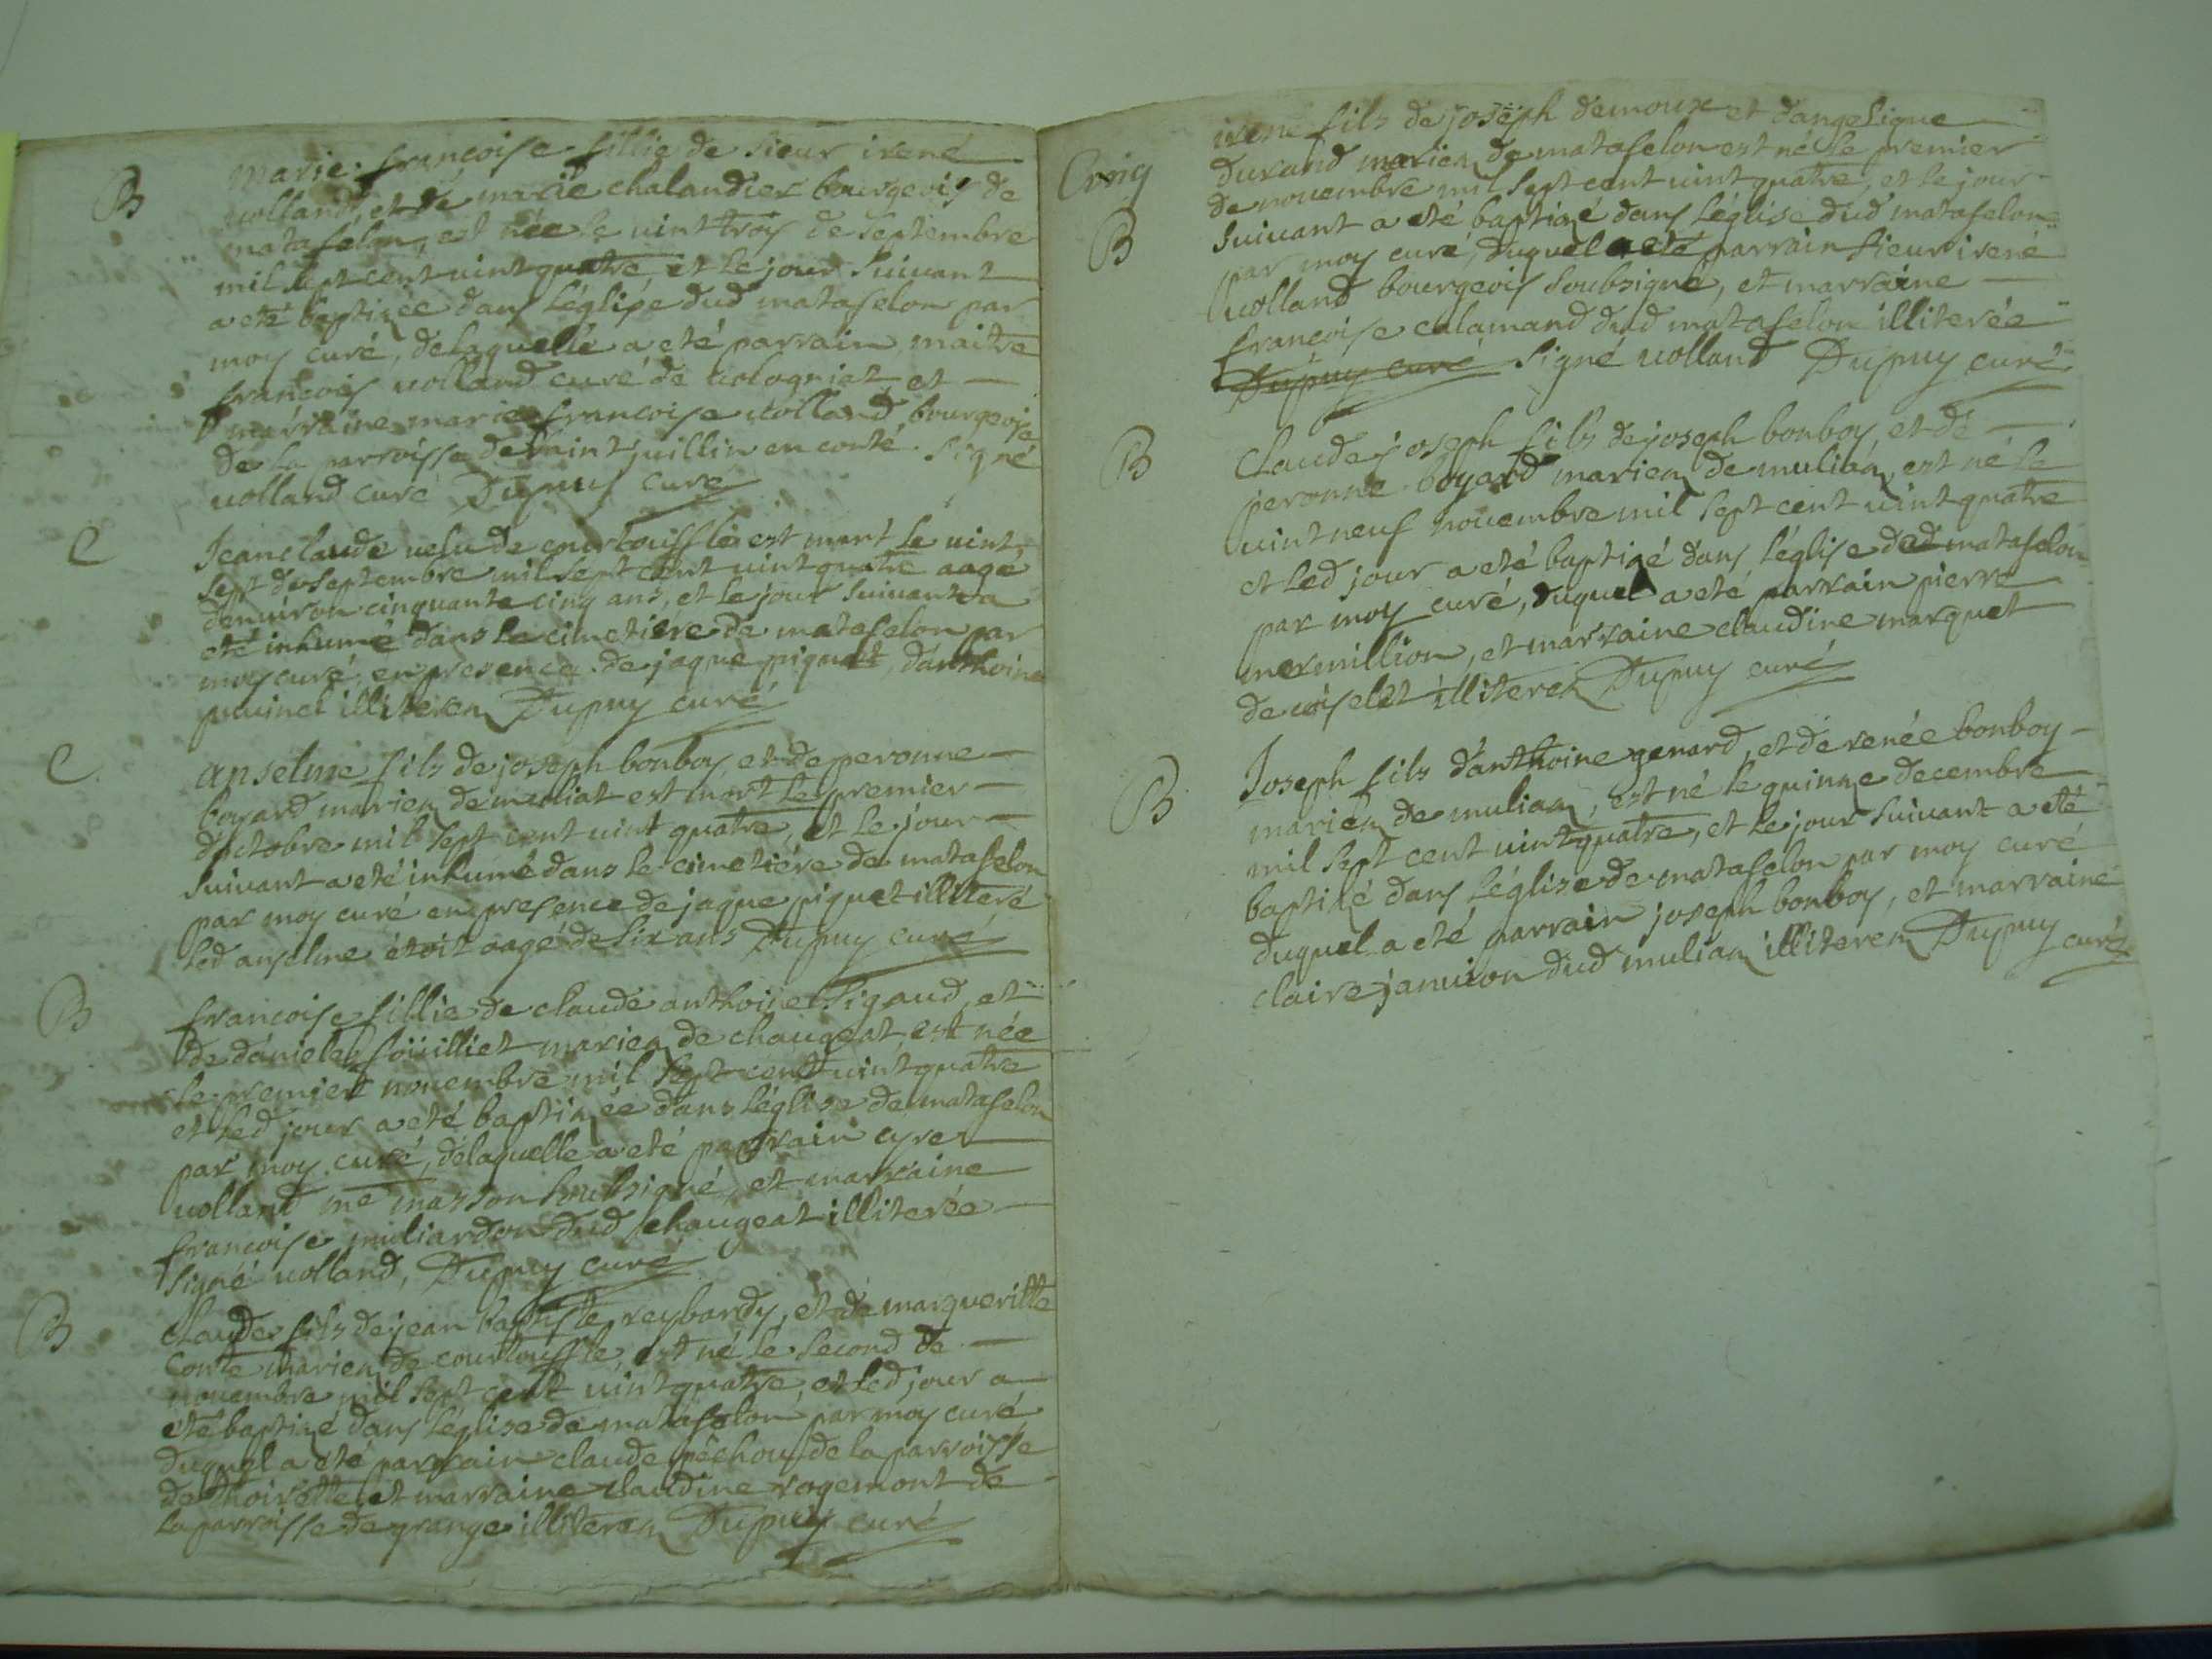 B
marie françoise fillie de sieur irené
uolland, et de marie chalandier bourgeois de
matafelon, est née le uint trois de septembre
mil sept cent uint quatre, et le jour suivant
a eté baptizée dans l'églize dud matafelon par
moy curé, de laquelle a eté parrain maitre
françois uolland curé de uologniat, et
marraine marie françoise uolland bourgeoise
de la parroisse de saint juillin en conté. signé
uolland curé Dupuy curé
C
Jeanclaude uelu de courtouffle est mort le uint
sept de septembre mil sept cent uint quatre aagé
denuiron cinquante cinq ans, et le jour suiuant a
eté inhumé dans le cimetiere de matafelon par
moy curé, en presence de jaque piquet, d'anthoine
pauinet illiterez Dupuy curé
C
anselme fils de joseph bonboy, et de peronne
boyard mariez de muliat est mort le premier
d'octobre mil sept cent uint quatre, et le jour
suiuant a eté inhumé dans le cimetiére de matafelon
par moy curé en presence de jaque piquet illiteré
led anselme étoit aagé de six ans Dupuy curé
B
françoise fillie de claude anthoine Sigaud, et
de daniele foüilliet mariez de chaugeat, est née
le premier nouembre mil sept cent uint quatre
et led jour a eté baptizée dans l'églize de matafelon
par moy curé, de laquelle a eté parrain cyre
uolland me masson soubsigné, et marraine
françoise muliardon dud chaugeat illiterée
signé uolland, Dupuy curé
B
Claude fils de jean baptiste reybardy, et de margueritte
Conte mariez de courtouffle, est né le second de
nouembre mil sept cent uint quatre, et led jour a
été baptizé dans l'églize de matafelon par moy curé
duquel a eté parrain claude péchoux de la parroisse
de thoirette, et marraine claudine rogemont de
la parroisse de grange illiterez Dupuy curé
Croig
B
irene fils de joseph demoux et d'angelique
durand mariez de matafelon est né le premier
de nouembre mil sept cent uint quatre, et le jour
suiuant a eté baptizé dans l'églize dud matafelon
par moy curé, duquel a eté parrain sieur irené
uolland bourgeois soubsigné, et marraine
françoise calamand dud matafelon illiterée
Dupuy curé signé uolland Dupuy curé
B
Claude joseph fils de joseph bonboy, et de
peronne boyard mariez de muliaz, est né le
uint neuf nouembre mil sept cent uint quatre
et led jour a eté baptizé dans l'églize dud matafelon
par moy curé, duquel a eté parrain pierre
mermillion, et marraine claudine marquet
de coiselet illiterez Dupuy curé
B
Joseph fils d'anthoine genard, et de renée bonboy
mariez de muliaz, est né le quinze decembre
mil sept cent uint quatre, et le jour suiuant a eté
baptizé dans l'églize de matafelon par moy curé
duquel a eté parrain joseph bonboy, et marraine
claire januion dud muliaz illiterez Dupuy curé